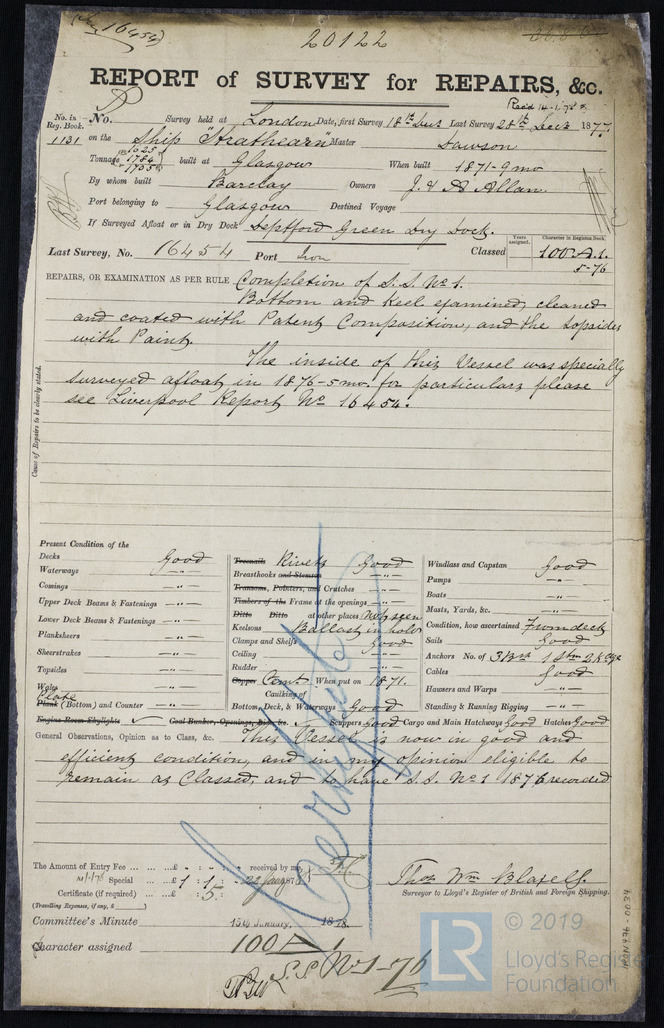 (16454)
20122
REPORT of SURVEY for REPAIRS, &c.
Rec'd 14-1-78
No. in Reg. Book. No. Survey held at London Date, first Survey 18th Decr Last Survey 28th Decr 1877
1131 on the Ship "Strathearn" Master Dawson
Tonnage 1625 1784 1705 built at Glasgow When built 1871-9mo
By whom built Barclay Owners J. & A Allan.
Port belonging to Glasgow Destined Voyage
If Surveyed Afloat or in Dry Dock Deptford Green Dry Dock.
Years assigned. Character in Register Book
Last Survey, No. 16454 Port Iron Classed 100 A.1.
5-76
REPAIRS, OR EXAMINATION AS PER RULE Completion of S.S. No 1.
Bottom and keel examined, cleaned
and coated with Patent Composition, and the topsides
with Paint.
The inside of this Vessel was specially
surveyed afloat in 1876-5mo. for particulars please
see Liverpool Report No 16454.
Cause of Repairs to be clearly stated.
Present Condition of the
Decks Good
Waterways -"-
Comings -"-
Upper Deck Beams & Fastenings -"-
Lower Deck Beams & Fastenings -"-
Planksheers -"-
Sheerstrakes -"-
Topsides -"-
Wales -"-
Plate
Plank (Bottom) and Counter -"-
Engine Room Skylights ✓ Coal Bunker, Openings, Lids, &c. ✓ Scuppers Good Cargo and Main Hatchways Good Hatches Good
Treenails Rivets Good
Breasthooks and Stemson -"-
Transoms, Pointers, and Crutches -"-
Timbers of the Frame at the openings -"-
Ditto Ditto at other places Not seen
Keelsons Ballast in hold
Clamps and Shelfs Good
Ceiling -"-
Rudder -"-
Copper Cemt. When put on 1871.
Caulking of
Bottom, Deck, & Waterways Good
Windlass and Capstan Good
Pumps -"-
Boats -"-
Masts, Yards, &c. -"-
Condition, how ascertained From deck
Sails Good
Anchors No. of 3 Brs 1 Stm 2 Kdge
Cables Good
Hawsers and Warps -"-
Standing & Running Rigging -"-
General Observations, Opinion as to Class, &c. This Vessel is now in good and
efficient condition, and in my opinion eligible to
remain as Classed, and to have S.S. No 1 1876 recorded
The Amount of Entry Fee ... £ : : received by me
Special ... £ 1 : 1 :
Certificate (if required) ... £ : 5 :
(Travelling Expenses, if any, £ )
Thos Wm
Surveyor to Lloyd's Register of British and Foreign Shipping.
Committee's Minute 15th January, 1878.
Character assigned 100 A 1
S.S. No 1-76
LR
© 2019
Lloyd's Register
Foundation